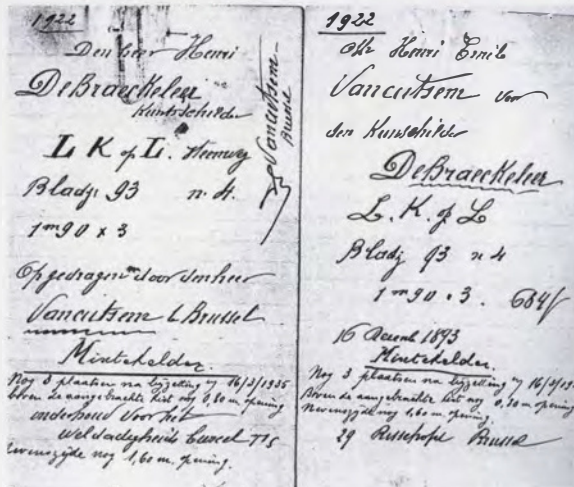 1922
Den heer Henri
DeBraeckeleer
Kunstschilder
L K of L. steenweg
Bladz 93 n. 4.
1 m 90 x 3
Opgedragen door den heer
Vancutsem t Brussel
Vancutsem
Brussel
Mintekelder.
Nog 3 plaatsen na bijzetting 16/3/1935
boven de aangebrachte kist nog 0,80 m. opening
onderhoud voor het
weldadigheids bureel
nevenszijde nog 1,60 m. opening.
1922
Henri Emile
Vancutsem voor
den Kunschilder
DeBraeckeleer
L. K. of L
Bladz 93 n 4
1 m 90 x 3. 684
16 Decemb 1893
Mintekelder.
Nog 3 plaatsen na bijzetting 16/3/19
Boven de aangebrachte kist nog 0,80 m opening
Nevenszijde nog 1,60 m. opening.
29 Brussel